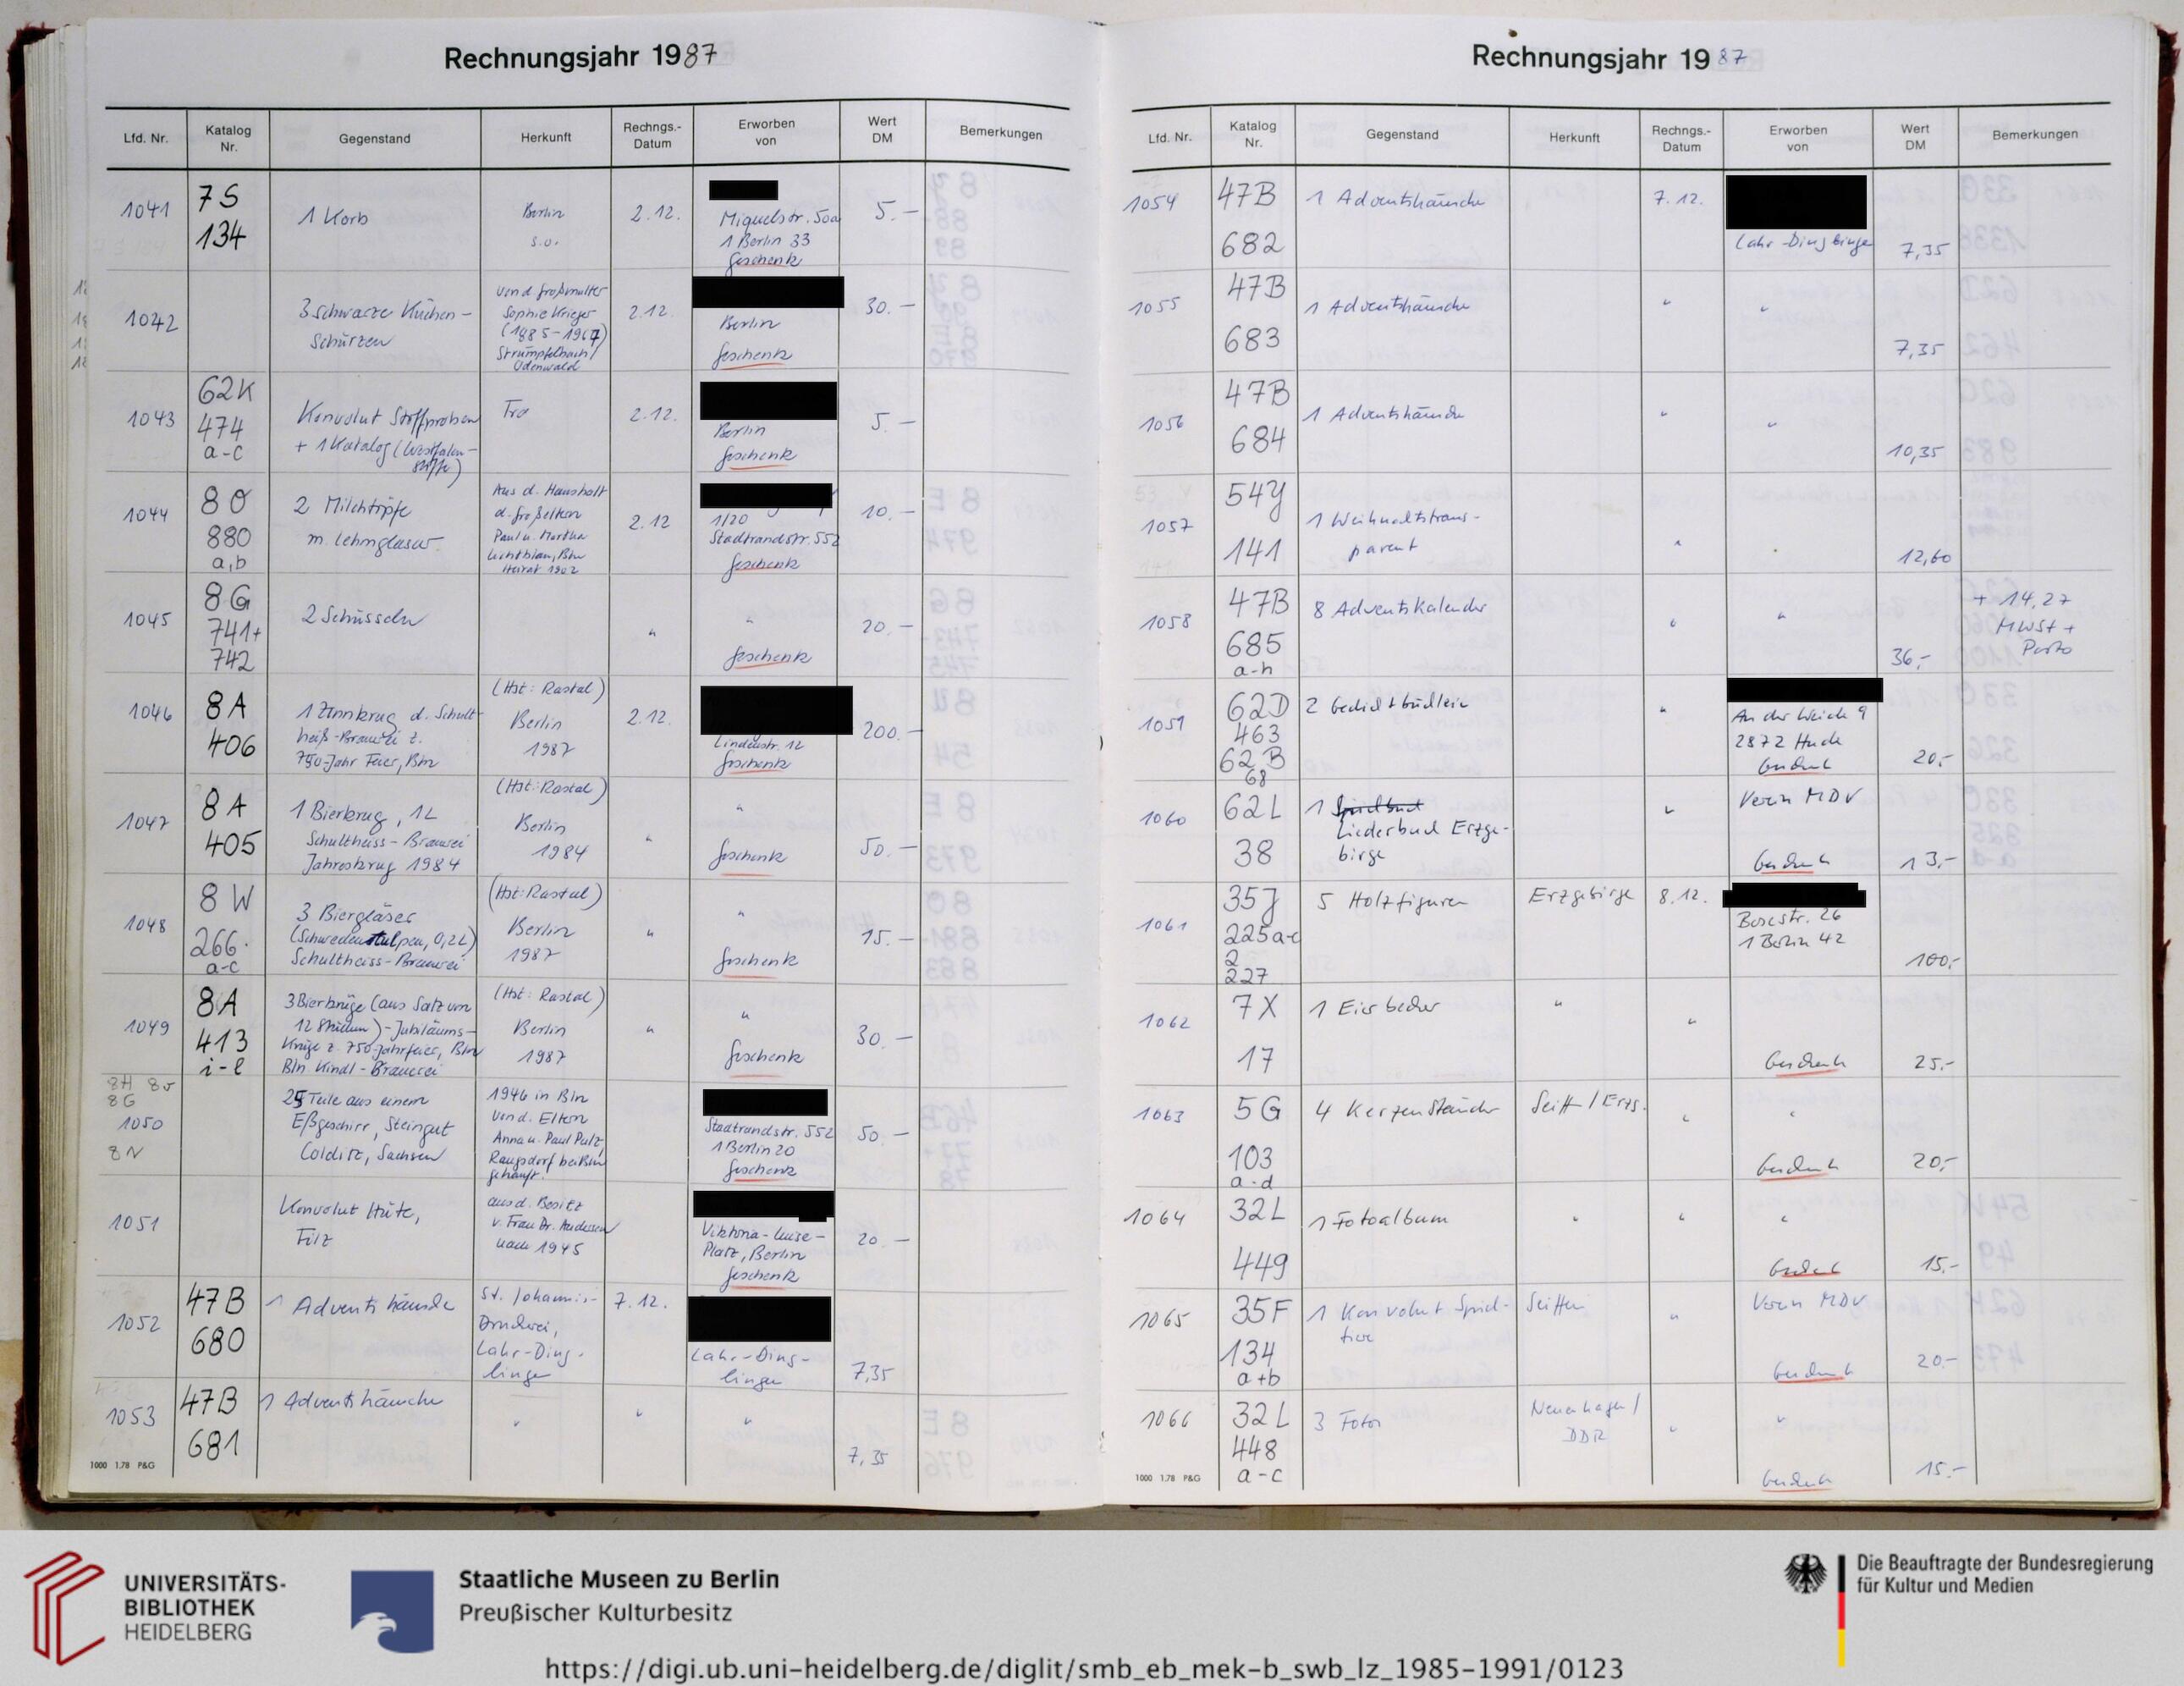 Rechnungsjahr 1987
Lfd. Nr.
Katalog
Nr.
Gegenstand
Herkunft
Rechngs.-
Datum
Erworben
von
Wert
DM
Bemerkungen
1041
7S
134
1 Korb
Berlin
s.o.
2.12.
Miquelstr. 50a
1 Berlin 33
Geschenk
5.–
1042
3 schwarze Küchen-
schürzen
von d. Großmutter
Sophie Krieger
(1885–1967)
Strümpfelbach/
Odenwald
2.12.
Berlin
Geschenk
30.–
1043
62K
474
a-c
Konvolut Stoffproben
+ 1 Katalog (Westfalen-
stoffe)
2.12.
Berlin
Geschenk
5.–
1044
8O
880
a,b
2 Milchtöpfe
m. Lehmglasur
Aus d. Haushalt
d. Großeltern
Paul u. Martha
Bln
Heirat 1902
2.12
1/20
Stadtrandstr. 552
Geschenk
10.–
1045
8G
741+
742
2 Schüsseln
"
"
Geschenk
20.–
1046
8A
406
1 Zinnkrug d. Schult-
heiß-Brauerei z.
750-Jahr Feier, Bln
(Hst: Rastal)
Berlin
1987
2.12.
Lindenstr. 12
Geschenk
200.–
1047
8A
405
1 Bierkrug, 1L
Schultheiss-Brauerei
Jahreskrug 1984
(Hst: Rastal)
Berlin
1984
"
"
Geschenk
50.–
1048
8W
266
a-c
3 Biergläser
(Schwedenstulpen, 0,2L)
Schultheiss-Brauerei
(Hst: Rastal)
Berlin
1987
"
"
Geschenk
15.–
1049
8A
413
i-l
3 Bierkrüge (aus Satz von
12 Stücken)-Jubiläums-
Krüge z. 750-Jahrfeier, Bln
Bln Kindl-Brauerei
(Hst: Rastal)
Berlin
1987
"
"
Geschenk
30.–
8H 8O
8G
1050
8N
25 Teile aus einem
Eßgeschirr, Steingut
Colditz, Sachsen
1946 in Bln
von d. Eltern
Anna u. Paul Pulz,
Rangsdorf bei Bln
gekauft.
Stadtrandstr. 552
1 Berlin 20
Geschenk
50.–
1051
Konvolut Hüte,
Filz
aus d. Besitz
v. Frau Dr. Andersen
nach 1945
Viktoria-Luise-
Platz, Berlin
Geschenk
20.–
1052
47B
680
1 Adventshäuschen
St. Johannis-
Druckerei,
Lahr-Ding-
lingen
7.12.
Lahr-Ding-
lingen
7,35
1053
47B
681
1 Adventshäuschen
"
"
"
7,35
1000 1.78 P&G
Rechnungsjahr 1987
Lfd. Nr.
Katalog
Nr.
Gegenstand
Herkunft
Rechngs.-
Datum
Erworben
von
Wert
DM
Bemerkungen
1054
47B
682
1 Adventshäuschen
7.12.
Lahr-Dinglingen
7,35
1055
47B
683
1 Adventshäuschen
"
"
7,35
1056
47B
684
1 Adventshäuschen
"
"
10,35
1057
54Y
141
1 Weihnachtstrans-
parent
"
"
12,60
1058
47B
685
a-h
8 Adventskalender
"
"
36,-
+ 14,27
MWSt +
Porto
1059
62D
463
62B
68
2 Gedichtbüchlein
"
An der Weide 9
2872 Hude
Geschenk
20,-
1060
62L
38
1
Liederbuch Erzge-
birge
"
Verein MDV
Geschenk
13,-
1061
35J
225a-c
2
227
5 Holzfiguren
Erzgebirge
8.12.
Bosestr. 26
1 Berlin 42
100,-
1062
7X
17
1 Eierbecher
"
"
Geschenk
25,-
1063
5G
103
a-d
4 Kerzenständer
Seiffen/Erzg.
"
"
Geschenk
20,-
1064
32L
449
1 Fotoalbum
"
"
"
Geschenk
15,-
1065
35F
134
a+b
1 Konvolut Spiel-
tiere
Seiffen
"
Verein MDV
Geschenk
20,-
1066
32L
448
a-c
3 Fotos
Neuenhagen/
DDR
"
"
Geschenk
15,-
1000 1.78 P&G
UNIVERSITÄTS-
BIBLIOTHEK
HEIDELBERG
Staatliche Museen zu Berlin
Preußischer Kulturbesitz
Die Beauftragte der Bundesregierung
für Kultur und Medien
https://digi.ub.uni-heidelberg.de/diglit/smb_eb_mek-b_swb_lz_1985-1991/0123